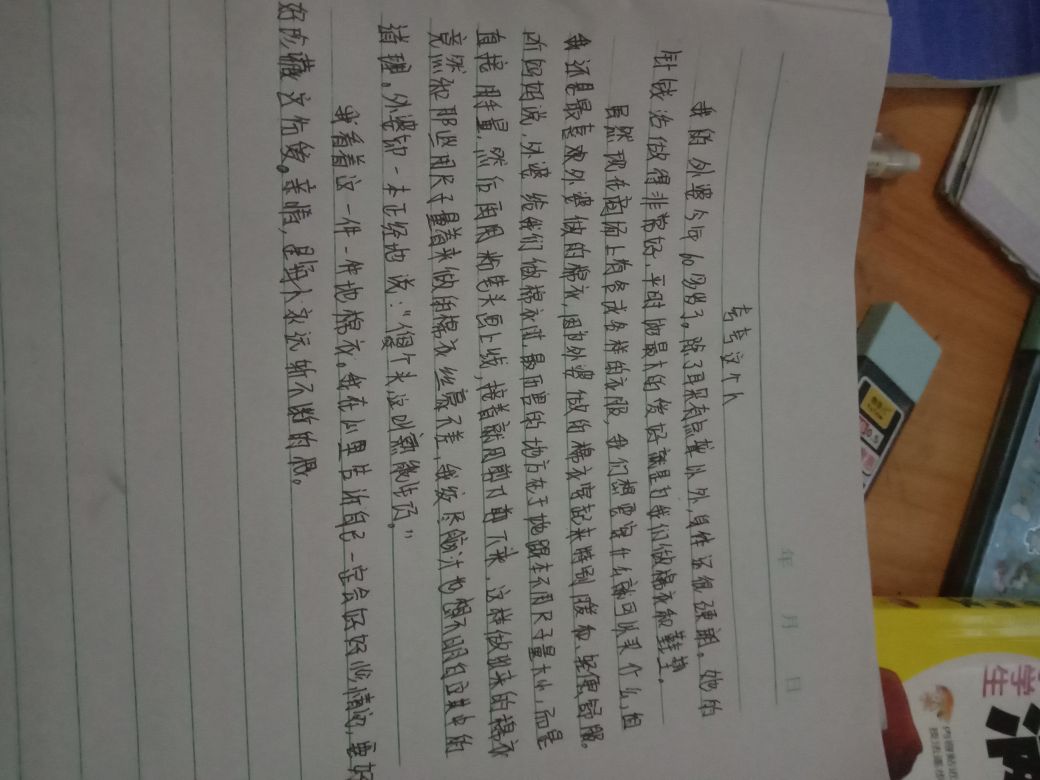 年 月 日
夸夸这个人
我的外婆今年60多岁了。除了耳朵有点聋以外,身体还很硬朗。她的
针线活做得非常好,平时她最大的爱好就是为我们做棉衣和鞋垫。
虽然现在商场上有各式各样的衣服,我们想要穿什么就可以买什么,但
我还是最喜欢外婆做的棉衣,因为外婆做的棉衣穿起来特别暖和、轻便舒服。
听妈妈说,外婆给我们做棉衣时,最厉害的地方在于她跟本不用尺子量大小,而是
直接用手量,然后再用粉笔头画上线,接着就用剪刀剪下来,这样做出来的棉衣
竟然和那些用尺子量着来做的棉衣丝毫不差,我绞尽脑汁也想不明白这其中的
道理。外婆却一本正经地说:“傻个头,这叫熟能生巧。”
我看着这一件一件地棉衣。我在心里告诉自己一定会好好珍惜的,要好
好珍藏这份爱。亲情,是每人永远斩不断的根。
学生
内容贴近